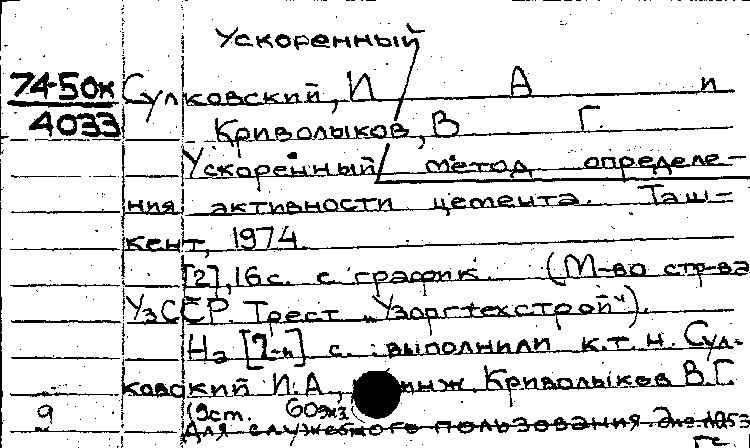 Ускоренный
74-50к Сулковский, И А и
4033 Криволыков, В Г.
Ускоренный метод определе-
ния активности цемента. Таш-
кент, 1974
[2], 16с. с график. (М-во стр-ва
УзССР. Трест „Узоргтехстрой").
На [2-й] с.: выполнили к.т.н. Сул-
ковский И.А, инж. Криволыков В.Г.
9 60экз
Для служебного пользования.